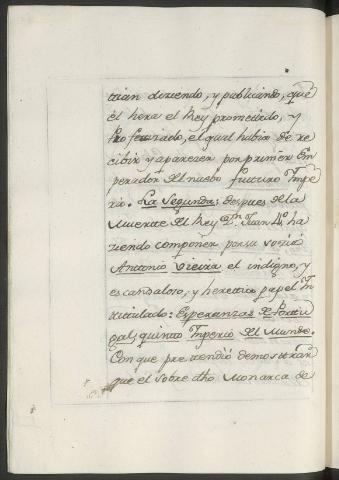 trian diziendo, y publicando, que
él hera el Rey prometido, y
Profetizado, el qual habia de re
cibir y aparecer por primer Em
perador del nuebo futuro Impe
rio. La Segunda; despues de la
Muerte del Rey Dn. Juan 4º ha
ziendo componer por su Socio
Antonio Vieira el indigno, y
escandaloso, y heretico papel In
titulado: Esperanzas de Portu
gal; quinto Imperio del Mundo.
Con que pretendió demostrar
que el sobre dho Monarca de